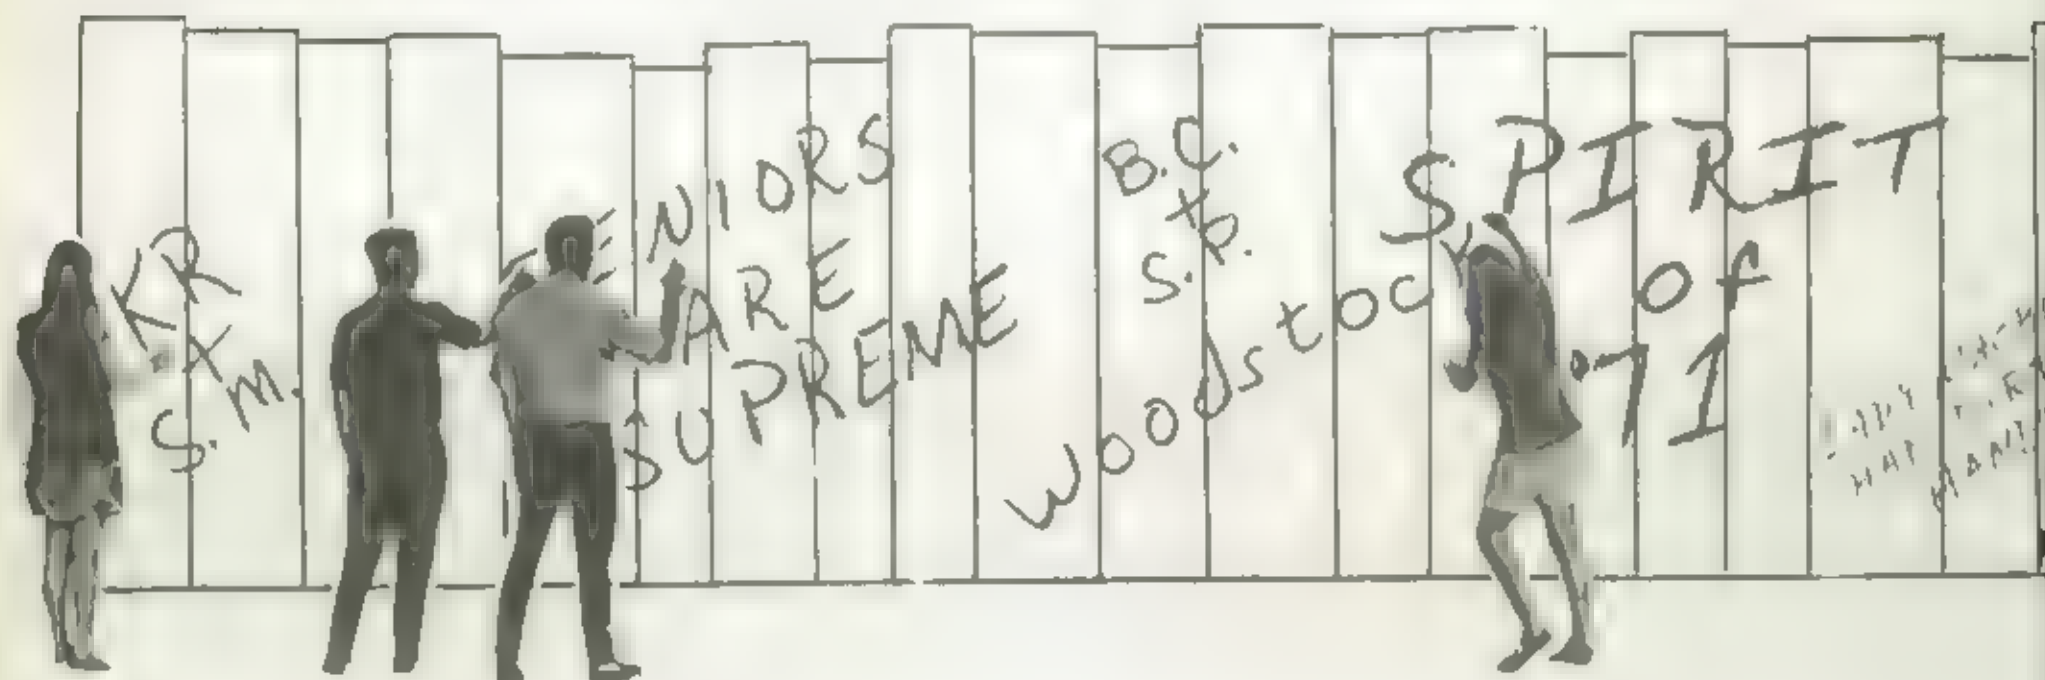 KR
X
S.M.
SENIORS
ARE
SUPREME
B.C.
+
Woodstock
SPIRIT
of
'71